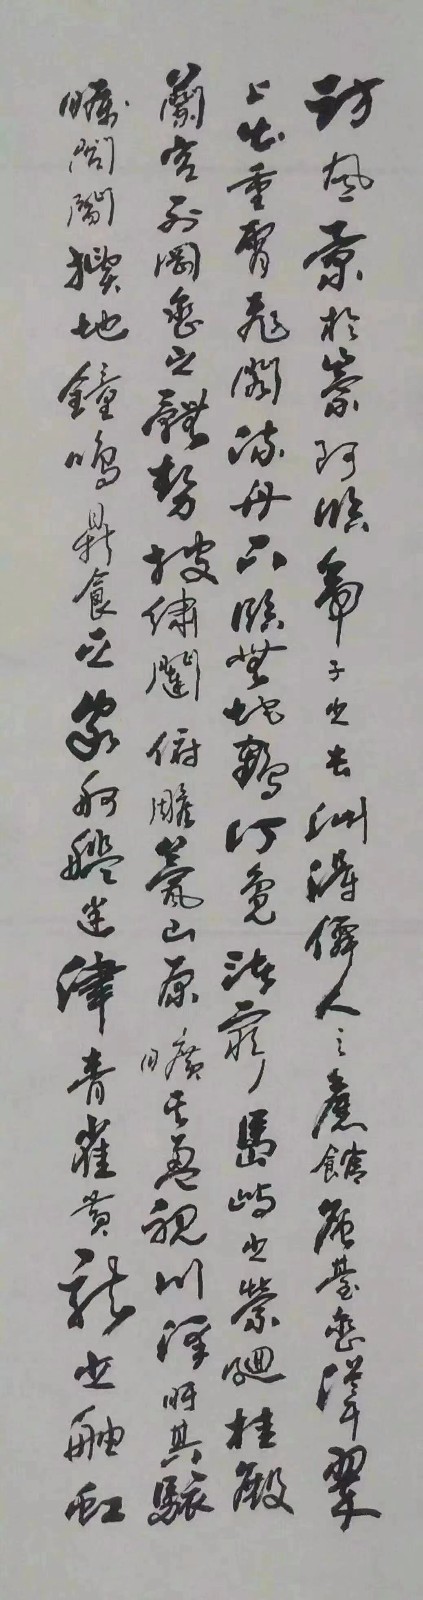 訪風景於崇阿臨帝子之長洲得僊人之舊館層臺巒翠
上出重霄飛閣流丹下臨無地鶴汀鳧渚窮島嶼之縈迴桂殿
蘭宮列岡巒之體勢披繡闥俯雕甍山原曠其盈視川澤盱其駭
矚閭閻撲地鐘鳴鼎食之家舸艦迷津青雀黃龍之舳虹